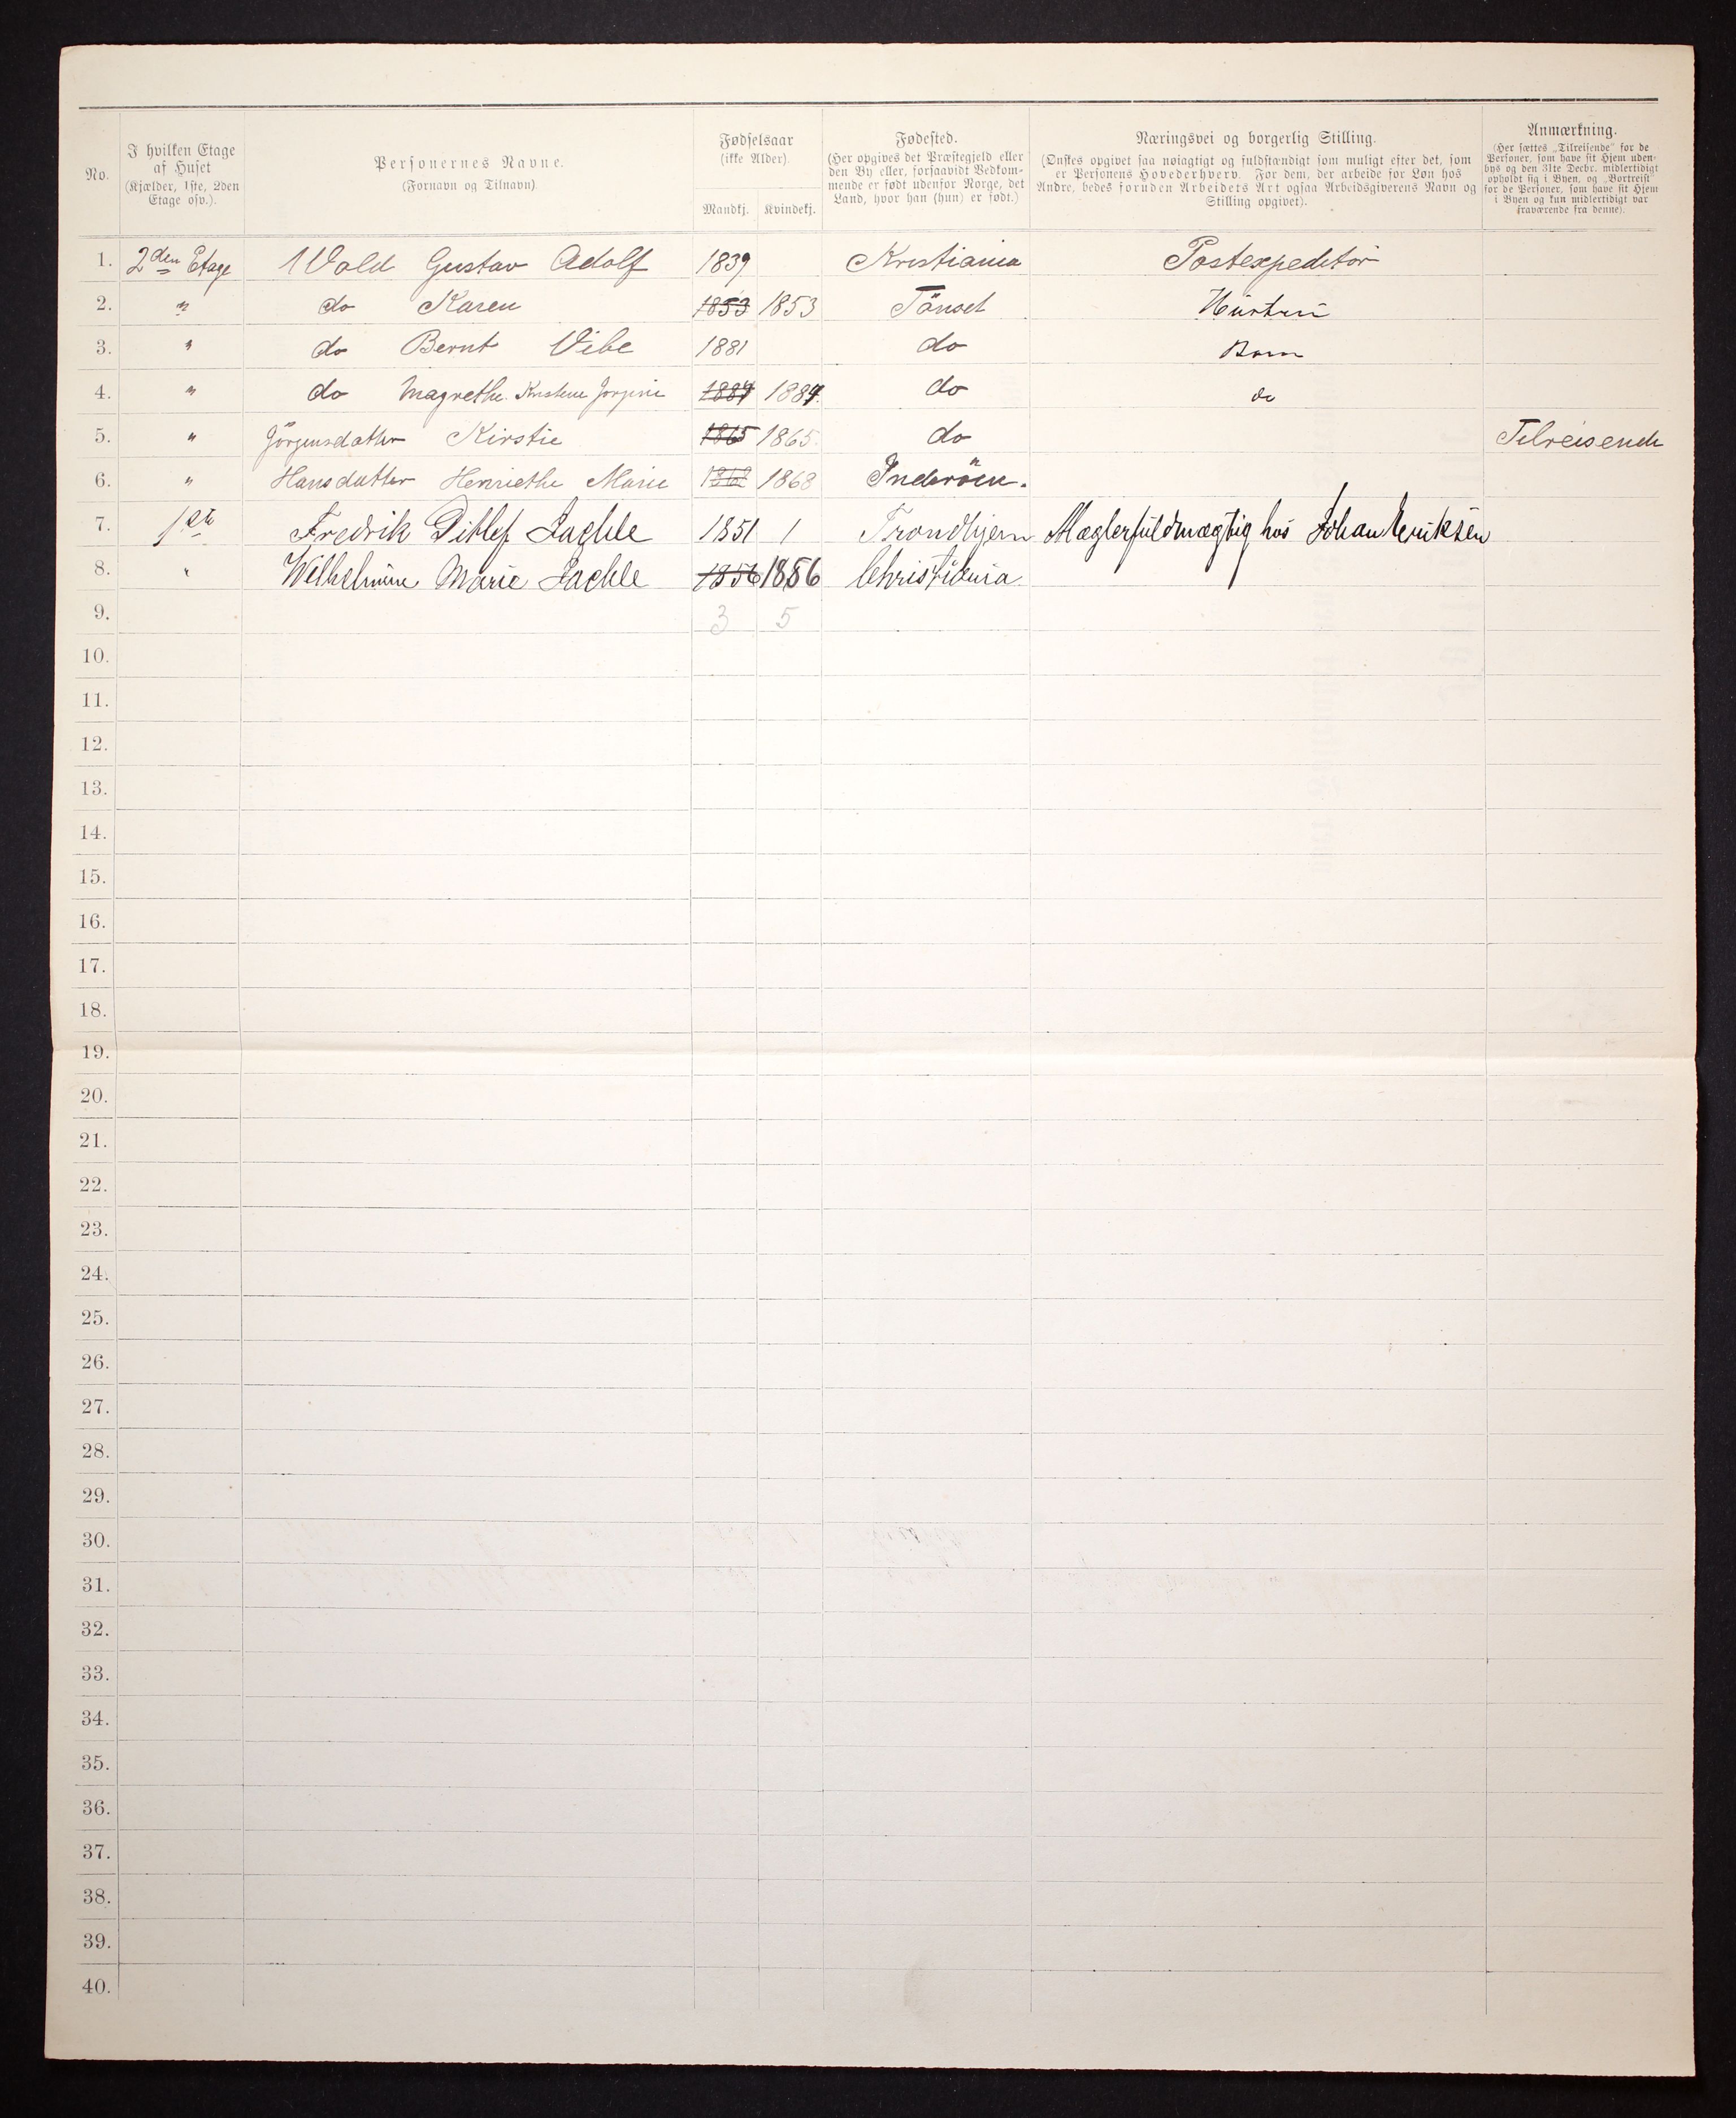 No.
I hvilken Etage af Huset (Kjælder, 1ste, 2den Etage osv.).
Personernes Navne. (Fornavn og Tilnavn)
Fødselsaar (ikke Alder).
Mandkj. Kvindekj.
Fødested. (Her opgives det Præstegjeld eller den By eller, forsaavidt Vedkommende er født udenfor Norge, det Land, hvor han (hun) er født.)
Næringsvei og borgerlig Stilling. (Ønskes opgivet saa nøiagtigt og fuldstændigt som muligt efter det, som er Personens Hovederhverv. For dem, der arbeide for Løn hos Andre, bedes foruden Arbeidets Art ogsaa Arbeidsgiverens Navn og Stilling opgivet).
Anmærkning. (Her sættes „Tilreisende" for de Personer, som have sit Hjem udenbys og den 31te Decbr. midlertidigt opholdt sig i Byen, og „Bortreist" for de Personer, som have sit Hjem i Byen og kun midlertidigt var fraværende fra denne).
1. 2den Etage Wold Gustav Adolf 1839 Kristiania Postexpeditör
2. " do Karen 1853 1853 Tönset Hustru
3. " do Bernt Vibe 1881 do Barn
4. " do Magrethe Kristine Jorgine 1884 1884. do do
5. " Jörgensdatter Kirstie 1865 1865. do Tilreisende
6. " Hansdatter Henriethe Marie 1868 1868 Inderöen.
7. 1ste Fredrik Ditlef 1851 1 Trondhjem Mæglerfuldmægtig hos Johan Eriksen
8. " Wilhelmine Marie 1856 1856 Christiania
9. 3 5
10.
11.
12.
13.
14.
15.
16.
17.
18.
19.
20.
21.
22.
23.
24.
25.
26.
27.
28.
29.
30.
31.
32.
33.
34.
35.
36.
37.
38.
39.
40.